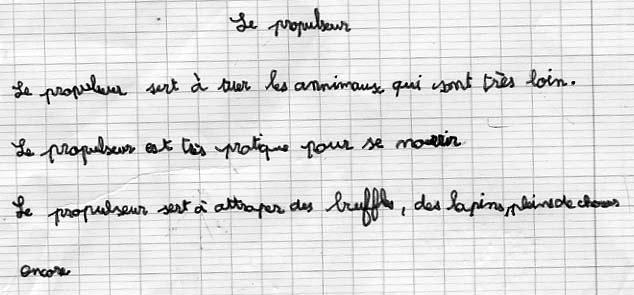 Le propulseur
Le propulseur sert à tuer les annimaux qui sont très loin.
Le propulseur est très pratique pour se nourrir
Le propulseur sert à attraper des buffles, des lapins, pleins de choses
encore